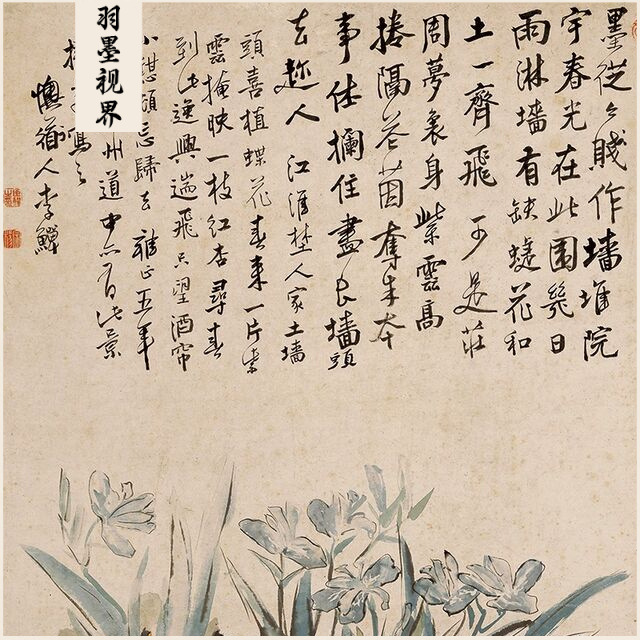 羽墨视界
墨從賤作墻堆院
宇春光在此園幾日
雨淋墻有缺蝶花和
土一齊飛 可是莊
周夢裏身紫雲高
捲隔花茵奪朱本
事仕攔住盡長墻頭
去趂人 江淮埜人家土墻
頭喜植蝶花春來一片紫
雲掩映一枝紅杏尋春
到此逸興遄飛只望酒帘
小憩頗忘歸去 雍正五年
州道中亦有此景
寫之
懊道人李鱓